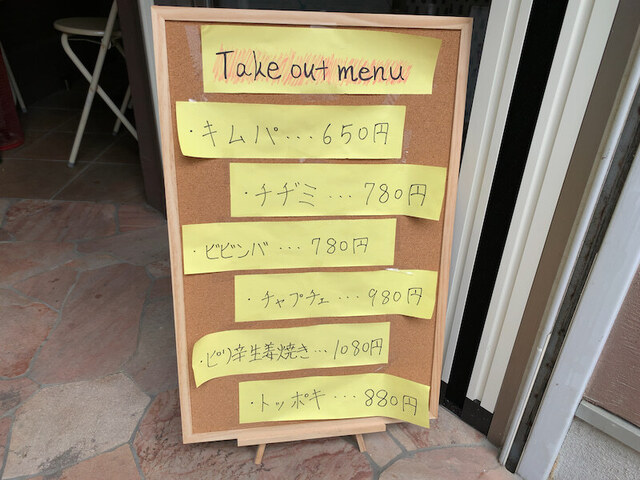 Take out menu
・キムパ...650円
・チヂミ...780円
・ビビンバ...780円
・チャプチェ...980円
・ピリ辛生姜焼き...1080円
・トッポキ...880円